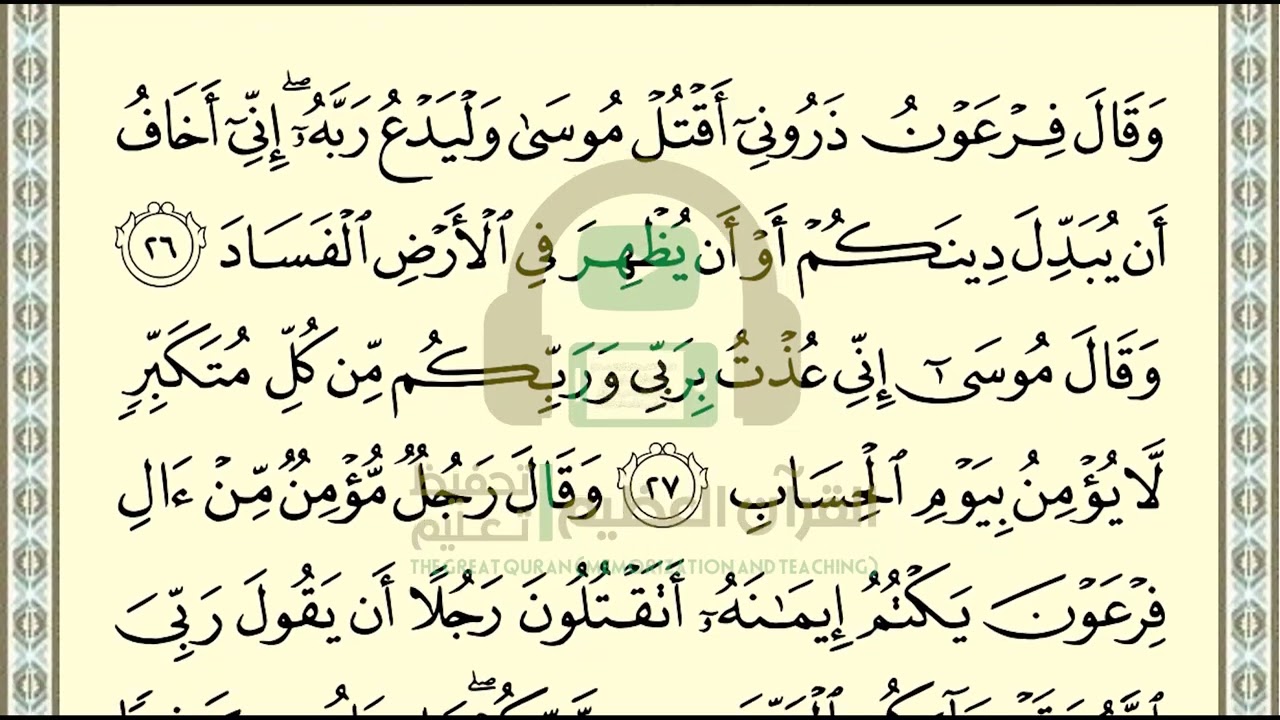 وَقَالَ فِرْعَوْنُ ذَرُونِيٓ أَقْتُلْ مُوسَىٰ وَلْيَدْعُ رَبَّهُۥٓۖ إِنِّيٓ أَخَافُ
أَن يُبَدِّلَ دِينَكُمْ أَوْ أَن يُظْهِرَ فِي ٱلْأَرْضِ ٱلْفَسَادَ ٢٦
وَقَالَ مُوسَىٰٓ إِنِّي عُذْتُ بِرَبِّي وَرَبِّكُم مِّن كُلِّ مُتَكَبِّرٍ
لَّا يُؤْمِنُ بِيَوْمِ ٱلْحِسَابِ ٢٧ وَقَالَ رَجُلٌ مُّؤْمِنٌ مِّنْ ءَالِ
القرآن العظيم تحفيظ تعليم
THE GREAT QURAN (MEMORIZATION AND TEACHING)
فِرْعَوْنَ يَكْتُمُ إِيمَٰنَهُۥٓ أَتَقْتُلُونَ رَجُلًا أَن يَقُولَ رَبِّيَ